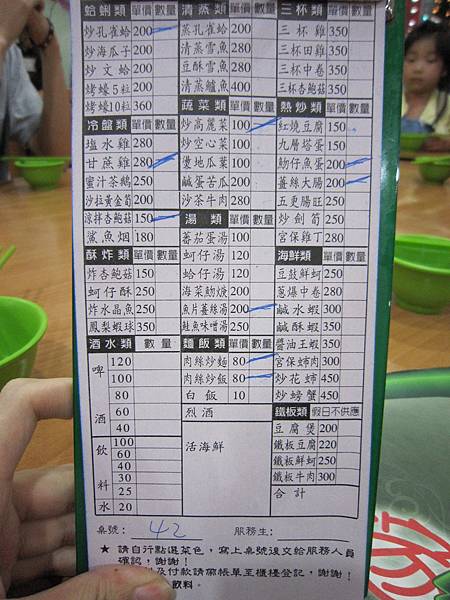 蛤蜊類 單價 數量
炒孔雀蛤 200
炒海瓜子 200
炒文蛤 200
烤蠔5粒 200
烤蠔10粒 360
冷盤類 單價 數量
塩水雞 280
甘蔗雞 280
蜜汁茶鵝 250
沙拉黃金筍 200
涼拌杏鮑菇 150
鯊魚烟 180
酥炸類 單價 數量
炸杏鮑菇 150
蚵仔酥 250
炸水晶魚 250
鳳梨蝦球 350
酒水類 數量
啤酒
120
100
80
60
40
飲料
100
60
40
30
25
水 20
清蒸類 單價 數量
蒸孔雀蛤 200
清蒸雪魚 280
豆酥雪魚 280
清蒸鱸魚 400
蔬菜類 單價 數量
炒高麗菜 100
炒空心菜 100
燙地瓜葉 100
鹹蛋苦瓜 200
沙茶牛肉 280
湯類 單價 數量
蕃茄蛋湯 100
蚵仔湯 120
蛤仔湯 120
海菜魩𩵚 200
魚片薑絲湯 200
鮭魚味噌湯 250
麵飯類 單價 數量
肉絲炒麵 80
肉絲炒飯 80
白飯 10
烈酒
活海鮮
三杯類 單價 數量
三杯雞 350
三杯田雞 350
三杯中卷 350
三杯杏鮑菇 350
熱炒類 單價 數量
紅燒豆腐 150
九層塔蛋 150
魩仔魚蛋 200
薑絲大腸 200
五更腸旺 250
炒劍筍 250
宮保雞丁 280
海鮮類 單價 數量
豆豉鮮蚵 250
蔥爆中卷 280
鹹水蝦 300
鹹酥蝦 350
醬油王蝦 350
宮保蚵肉 300
炒花蚵 450
炒螃蟹 450
鐵板類 假日不供應
豆腐煲 200
鐵板豆腐 220
鐵板鮮蚵 250
鐵板牛肉 300
合計
桌號: 42 服務生:
★ 請自行點選菜色,寫上桌號後交給服務人員
確認,謝謝!
及付款請帶帳單至櫃檯登記,謝謝!
飲料.